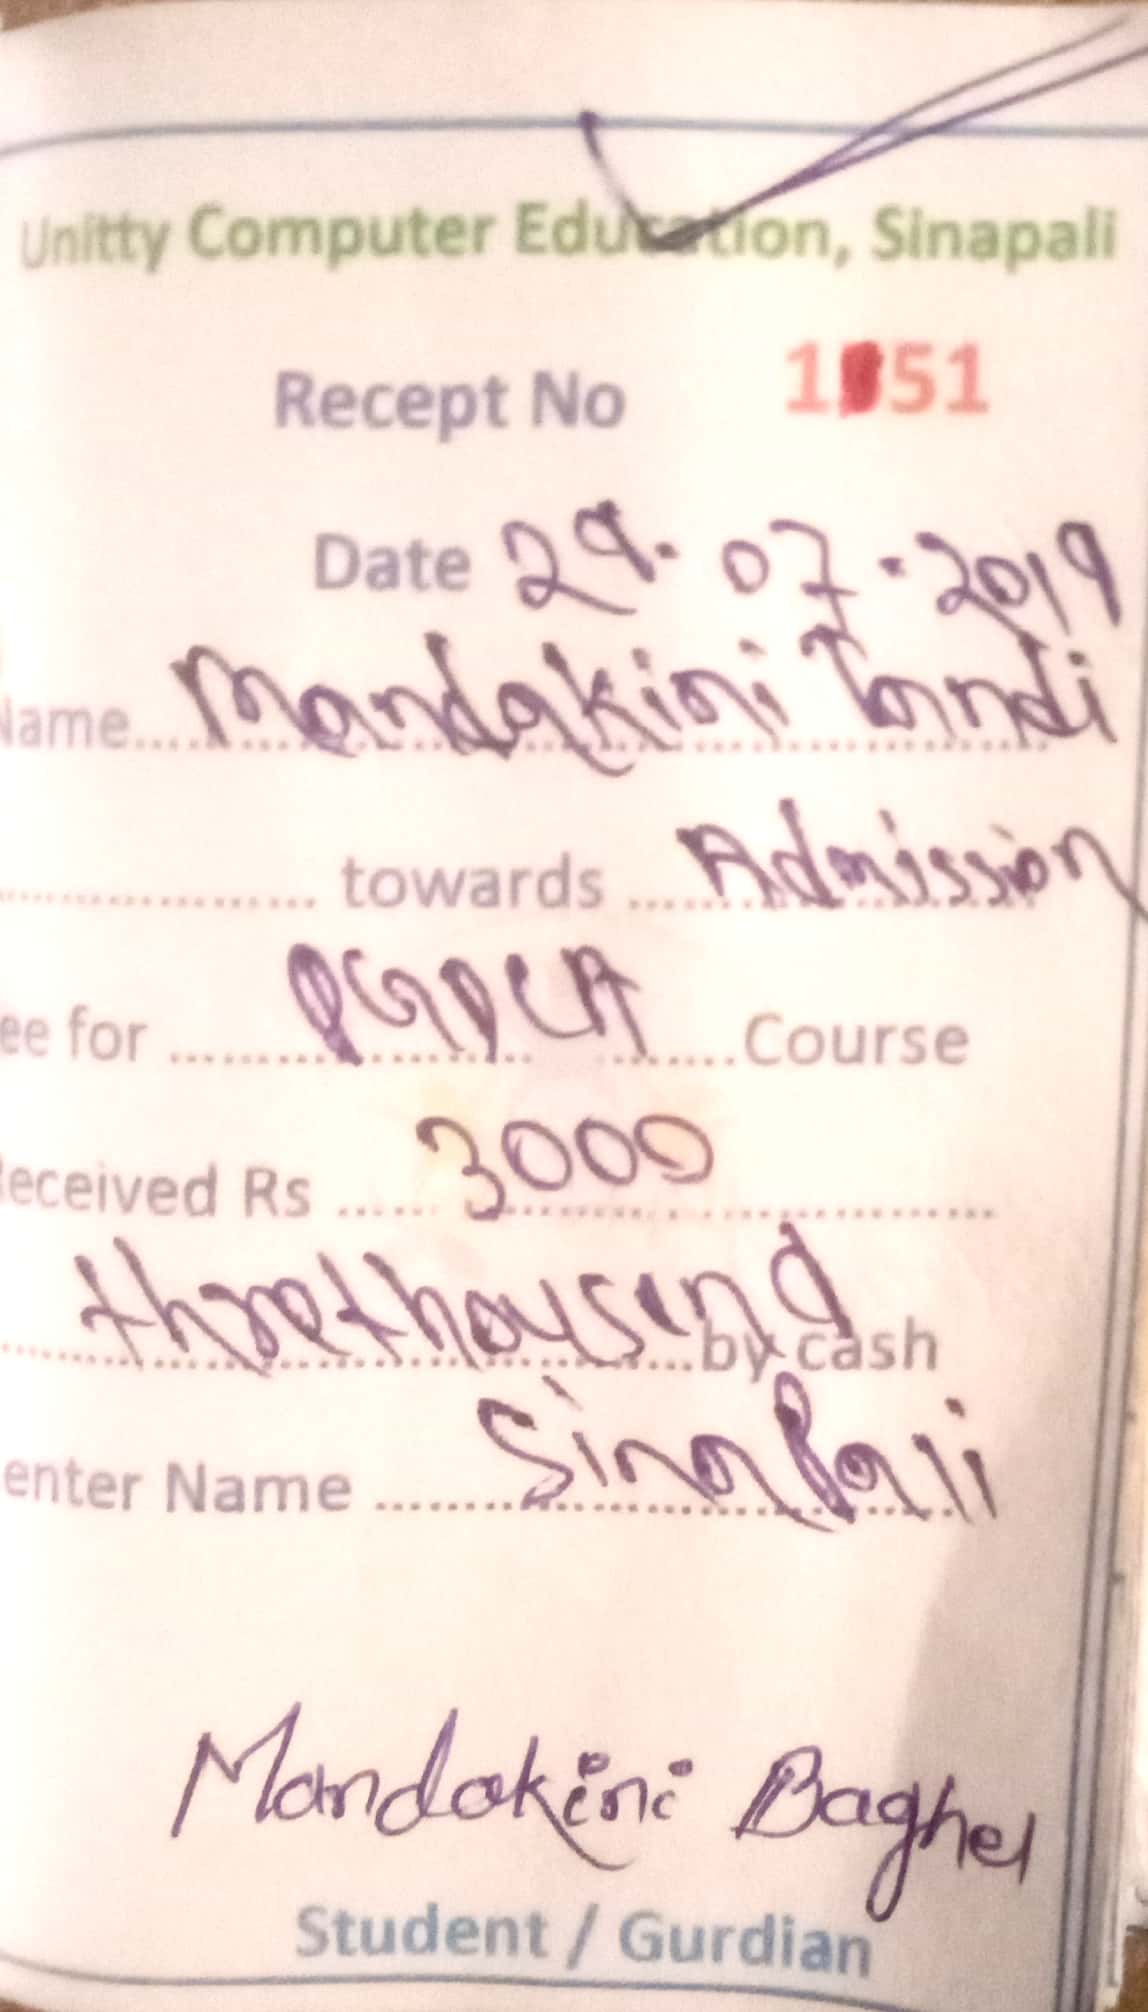 Unitty Computer Education, Sinapali
Recept No 1 51
Date 29.07.2019
Name Mandakini Tandi
towards Admission
ee for PGDCA Course
Received Rs 3000
threethousend by cash
enter Name Sinapali
Mandakini Baghel
Student / Gurdian